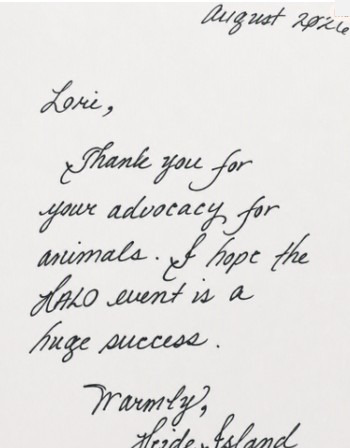 August
Lorie,
Thank you for
your advocacy for
animals. I hope the
HALO event is a
huge success.
Warmly,
Heide Island